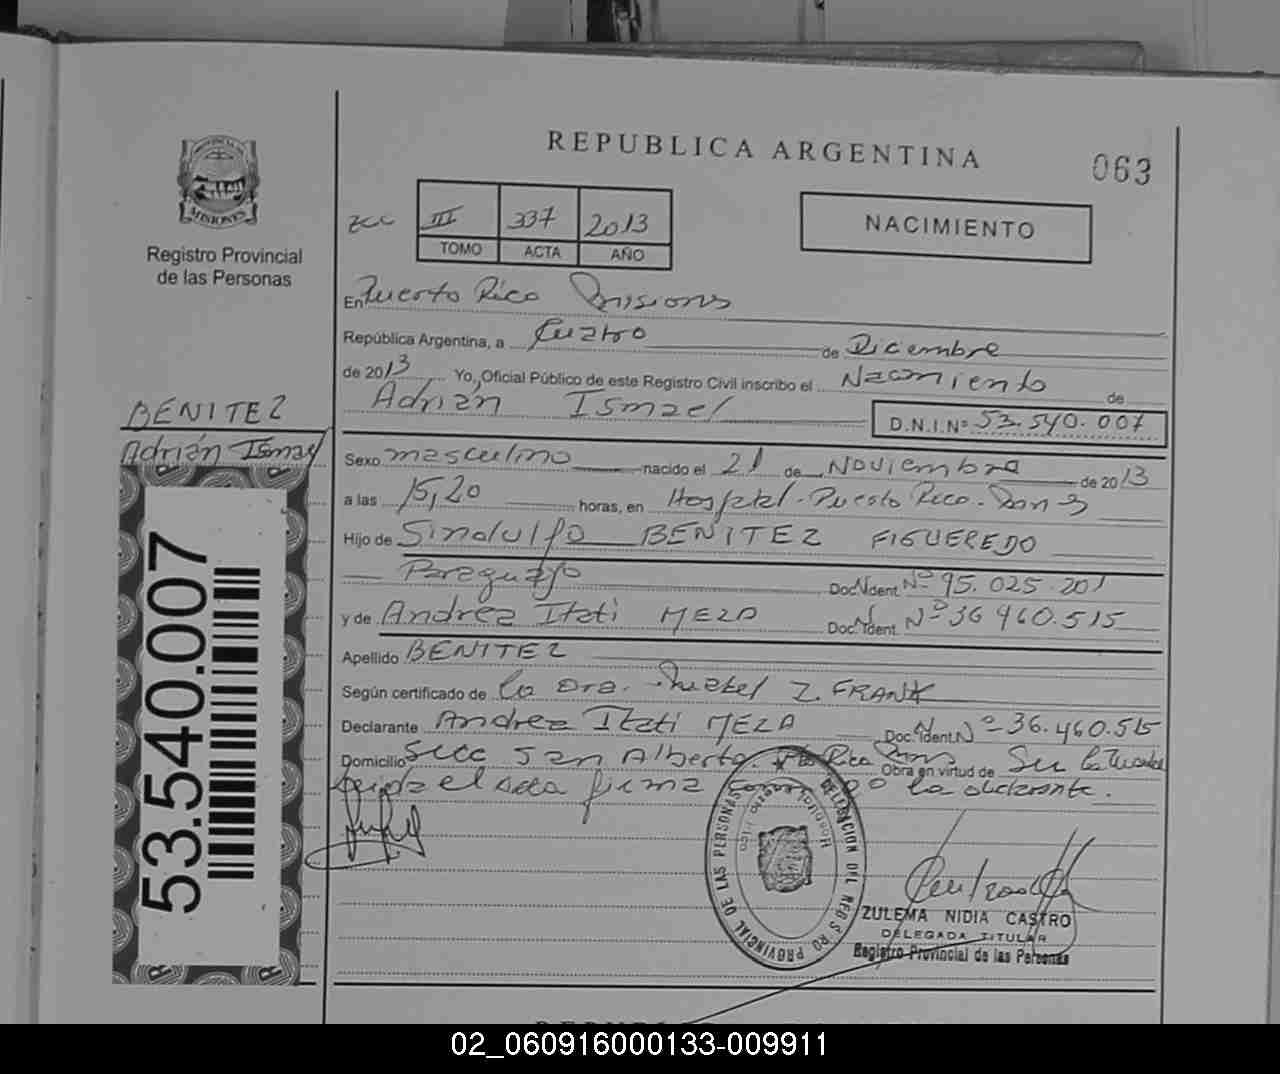 REPUBLICA ARGENTINA
063
PROVINCIA DE MISIONES
Registro Provincial
de las Personas
III 337 2013
TOMO ACTA AÑO
NACIMIENTO
En Puerto Rico Misiones
República Argentina, a Cuatro de Diciembre
de 2013 Yo, Oficial Público de este Registro Civil inscribo el Nacimiento de
Adrián Ismael D.N.I.Nº 53.540.007
BENITEZ
Adrián Ismael
Sexo masculino nacido el 21 de Noviembre de 2013
a las 15,20 horas, en Hospital. Puesto Rico.
Hijo de Sindulfo BENITEZ FIGUEREDO
Paraguayo Doc. Ident. Nº 95.025.201
y de Andrea Itati MEZA Doc. Ident. Nº 36 460.515
Apellido BENITEZ
Según certificado de la Dra. Z. FRANK
Declarante Andrea Itati MEZA Doc. Ident. Nº 36.460.515
Domicilio Secc San Alberto Pto Rico Obra en virtud de Su
el acta firma la declarante.
53.540.007
DELEGACION DEL REGISTRO PROVINCIAL DE LAS PERSONAS
ZULEMA NIDIA CASTRO
DELEGADA TITULAR
Registro Provincial de las Personas
02_060916000133-009911